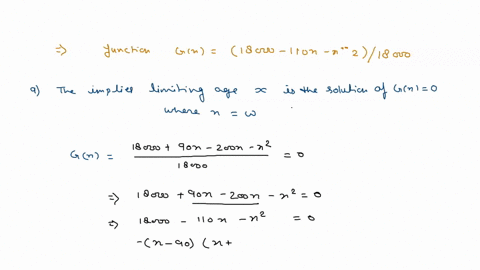 => function G(n) = (18000 - 110n - n**2)/18000
a) The implies limiting age x is the solution of G(n)=0
where n = ω
G(n) = 18000 + 90n - 200n - n² / 18000 = 0
=> 18000 + 90n - 200n - n² = 0
=> 18000 - 110n - n² = 0
-(n-90) (n+